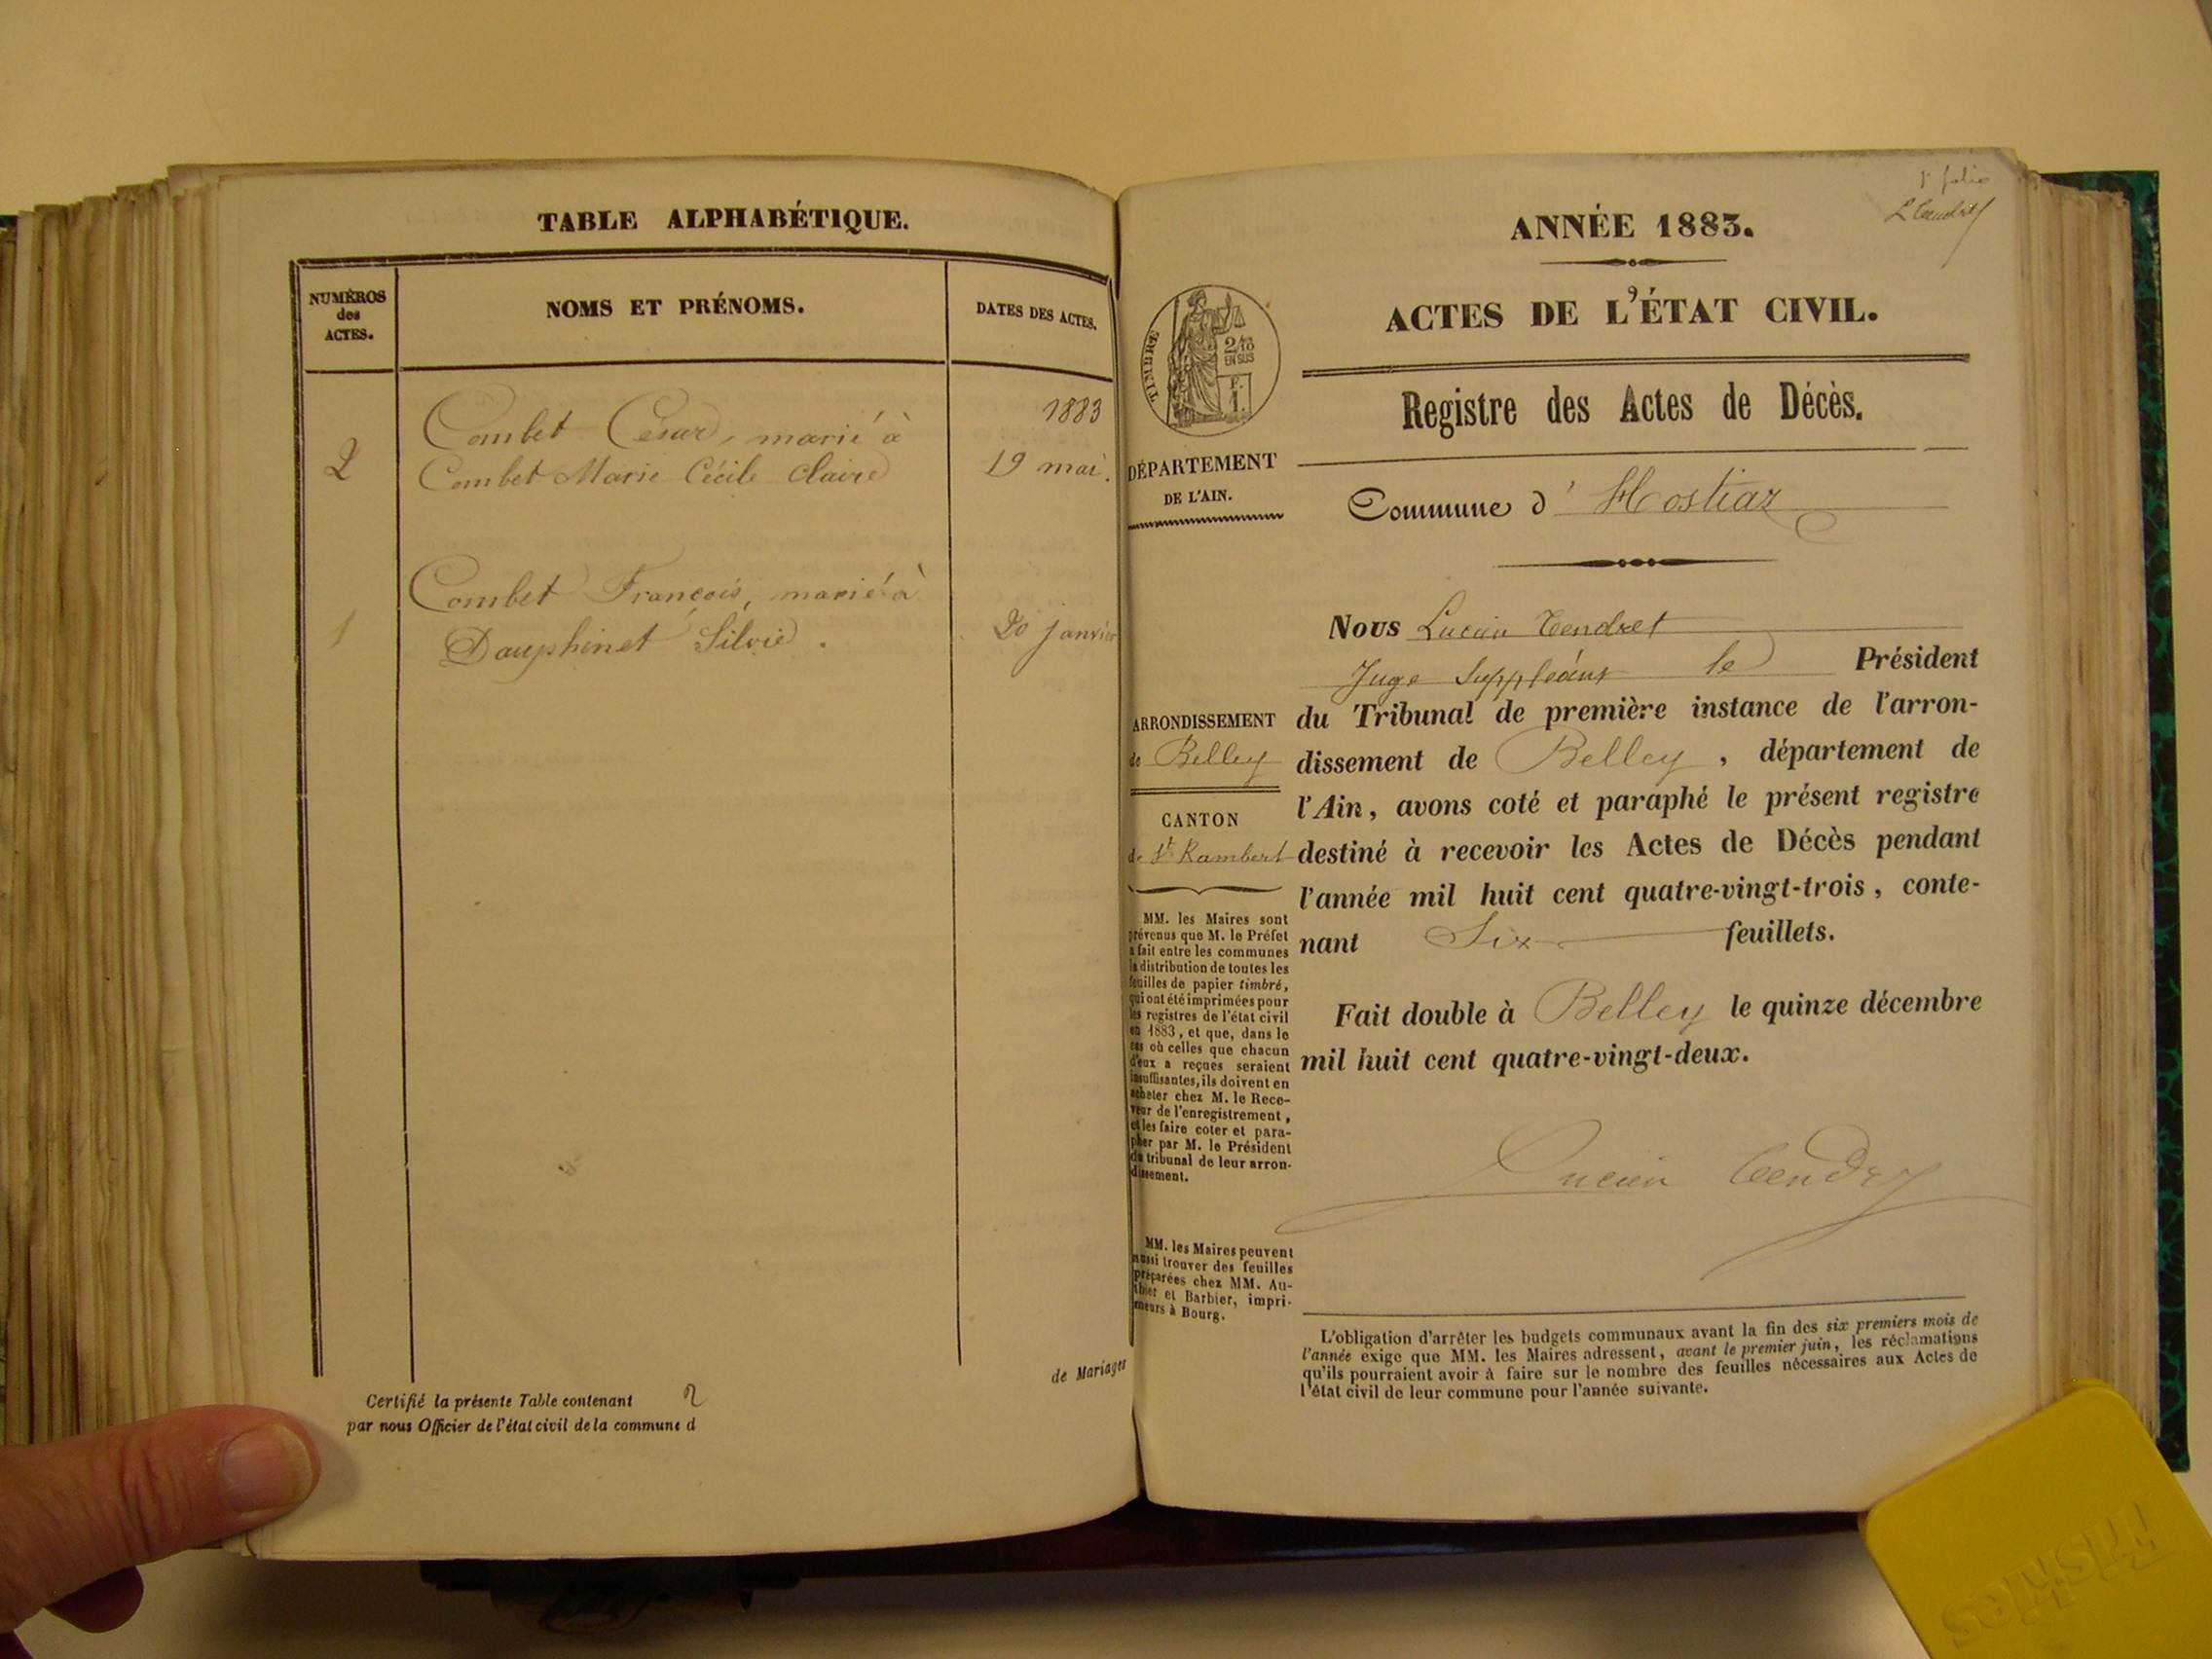 TABLE ALPHABÉTIQUE.
NUMÉROS
des
ACTES.
NOMS ET PRÉNOMS.
DATES DES ACTES.
1883
2
Combet César, marié à
Combet Marie Cécile Claire
19 mai.
1
Combet François, marié à
Dauphinet Silvie.
20 janvier
Certifié la présente Table contenant 2
de Mariages
par nous Officier de l'état civil de la commune d
1er folio
L Tendret
ANNÉE 1883.
ACTES DE L'ÉTAT CIVIL.
TIMBRE
2/10
EN SUS
F.
1.
Registre des Actes de Décès.
DÉPARTEMENT
DE L'AIN.
Commune d' Hostiaz
Nous Lucien Tendret
Juge Suppléant le Président
du Tribunal de première instance de l'arron-
dissement de Belley, département de
l'Ain, avons coté et paraphé le présent registre
destiné à recevoir les Actes de Décès pendant
l'année mil huit cent quatre-vingt-trois, conte-
nant Six feuillets.
Fait double à Belley le quinze décembre
mil huit cent quatre-vingt-deux.
Lucien Tendret
ARRONDISSEMENT
de Belley
CANTON
de St Rambert
MM. les Maires sont
prévenus que M. le Préfet
a fait entre les communes
la distribution de toutes les
feuilles de papier timbré,
qui ont été imprimées pour
les registres de l'état civil
en 1883, et que, dans le
cas où celles que chacun
d'eux a reçues seraient
insuffisantes, ils doivent en
acheter chez M. le Rece-
veur de l'enregistrement,
et les faire coter et para-
pher par M. le Président
du tribunal de leur arron-
dissement.
MM. les Maires peuvent
aussi trouver des feuilles
préparées chez MM. Au-
thier et Barbier, impri-
meurs à Bourg.
L'obligation d'arrêter les budgets communaux avant la fin des six premiers mois de
l'année exige que MM. les Maires adressent, avant le premier juin, les réclamations
qu'ils pourraient avoir à faire sur le nombre des feuilles nécessaires aux Actes de
l'état civil de leur commune pour l'année suivante.
Friskies